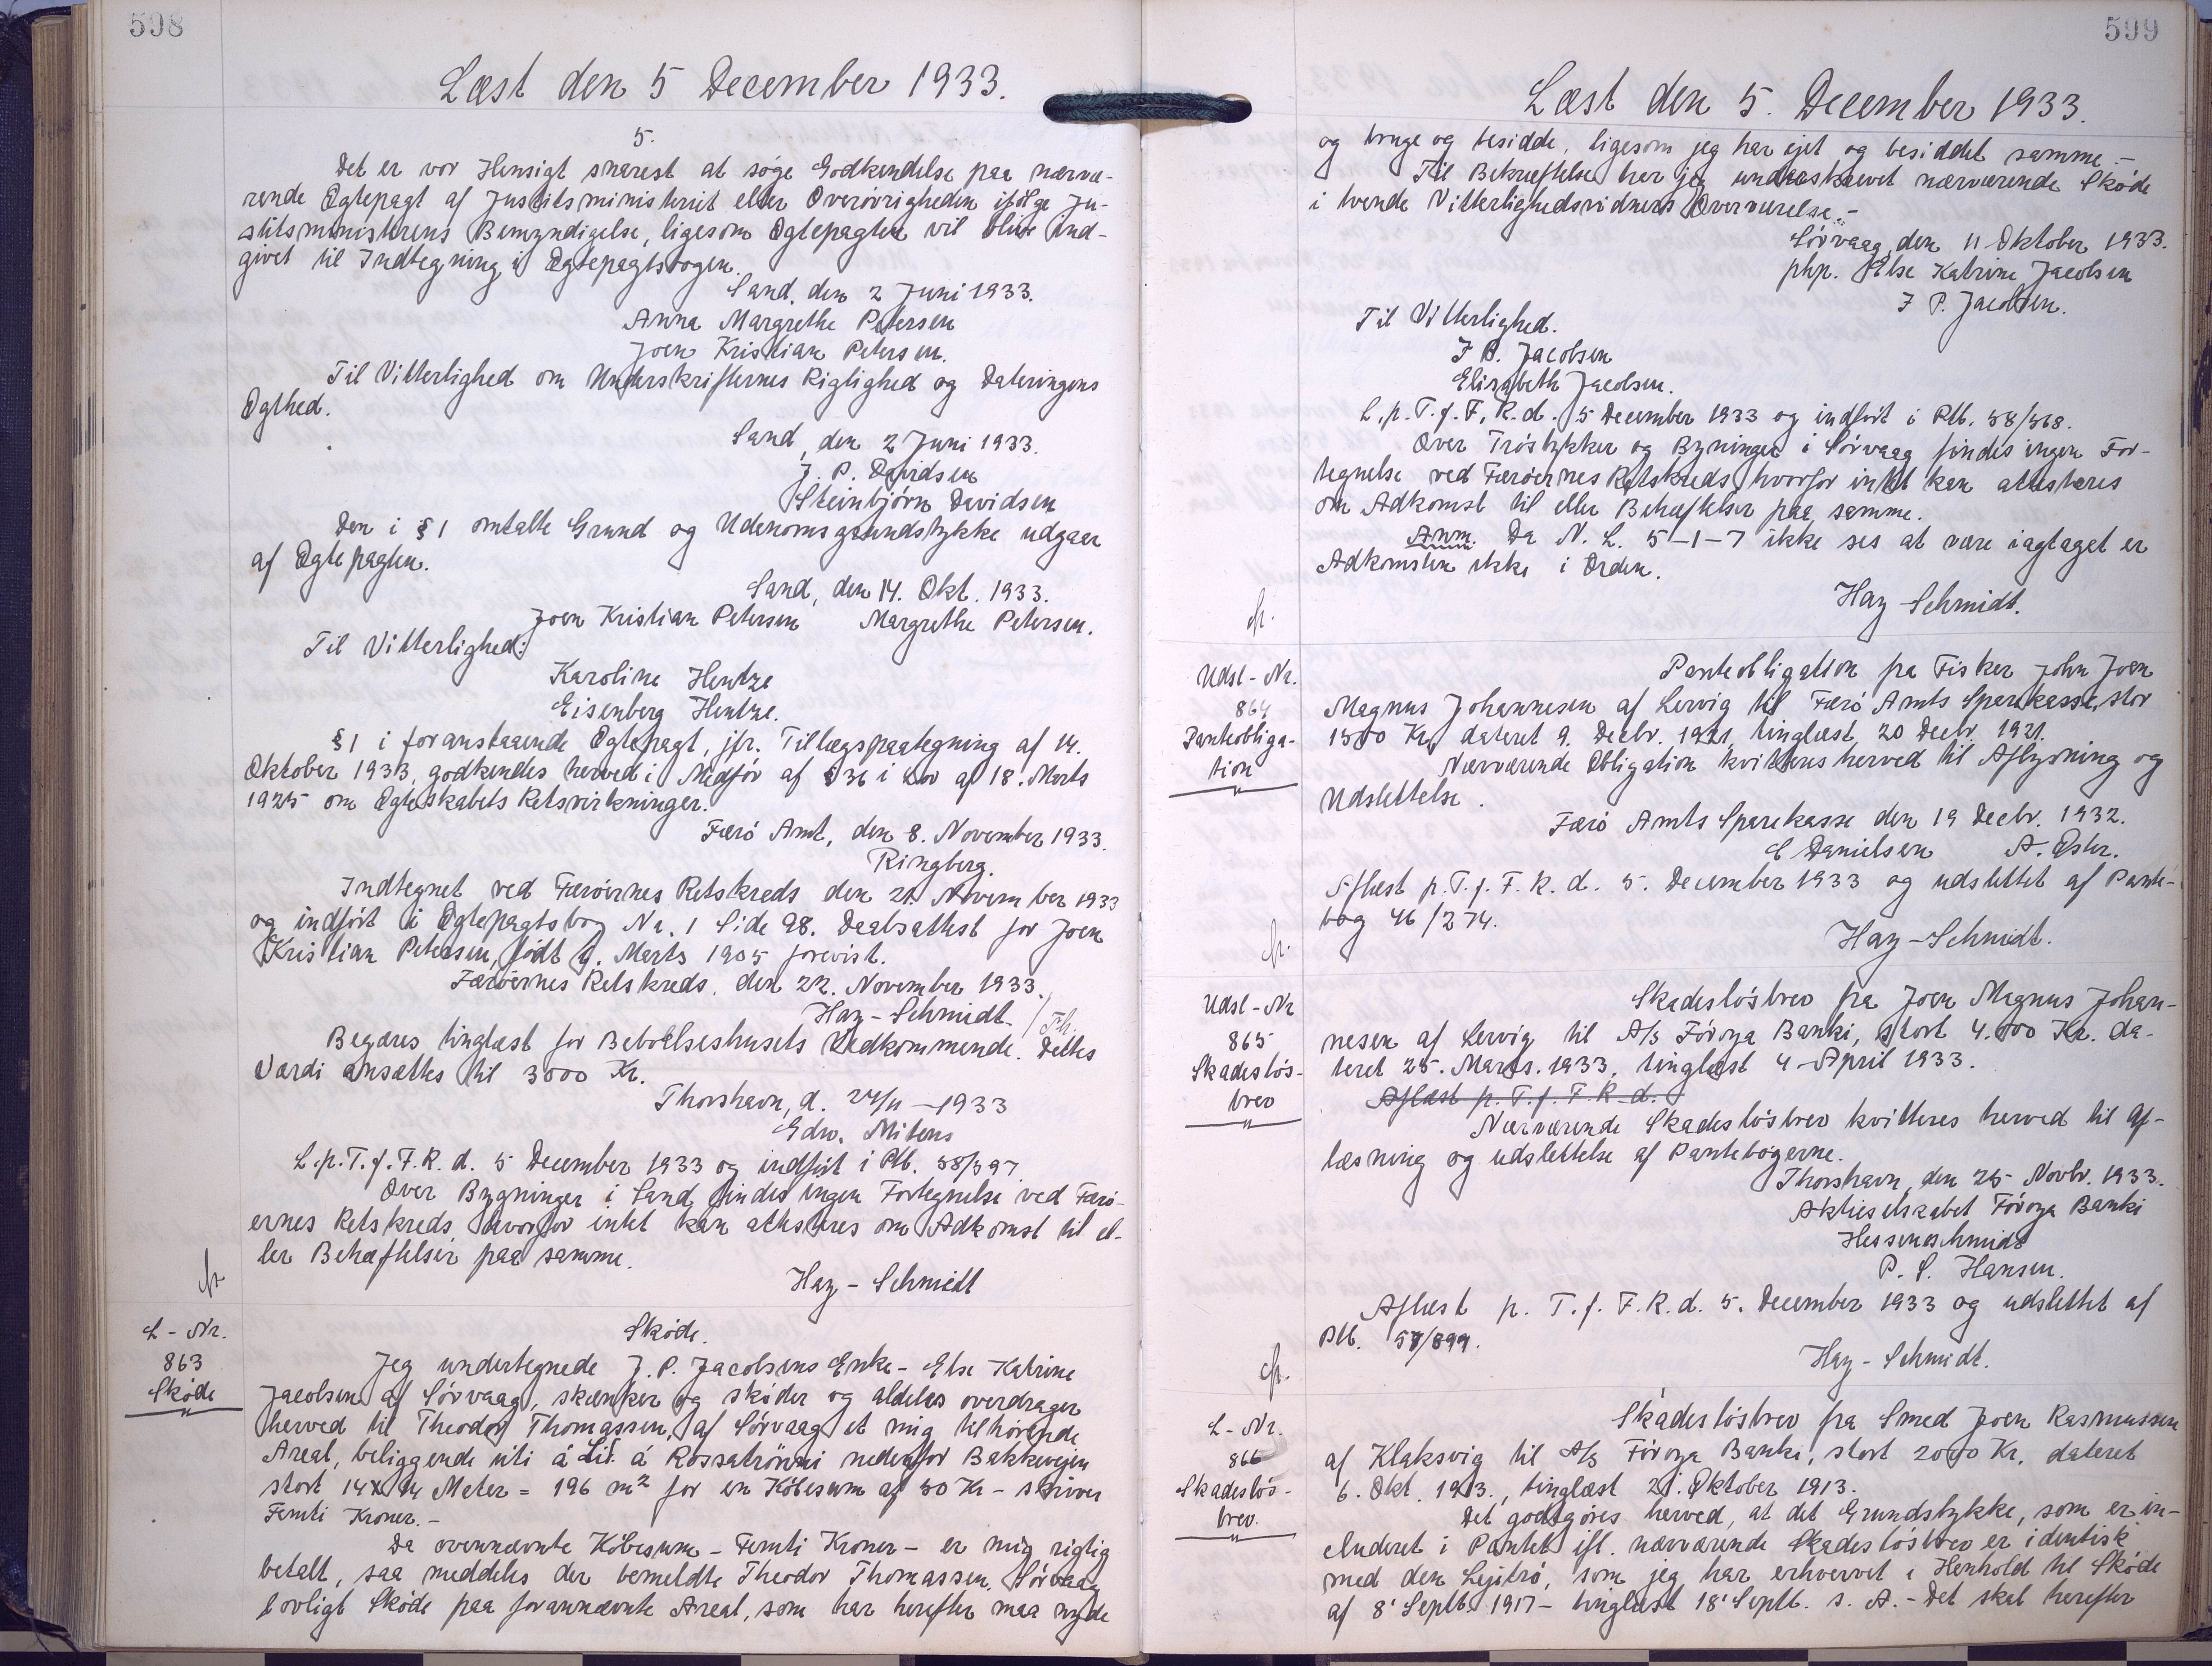 598
Læst den 5 December 1933.
5.
Det er vor Hensigt snarest at søge Godkendelse paa nærvæ-
rende Ægtepagt af Justitsministeriet eller Overøvrigheden ifölge Ju-
stitsministerens Bemyndigelse, ligesom Ægtepagten vil blive ind-
givet til Indtegning i Ægtepagtsbogen.
Sand, den 2 Juni 1933.
Anna Margrethe Petersen
Joen Kristian Petersen.
Til Vitterlighed om Underskrifternes Rigtighed og Dateringens
Ægthed.
Sand, den 2 Juni 1933.
J. P. Davidsen
Steinbjörn Davidsen
Den i § 1 omtalte Grund og Udenomsgrundstykke udgaar
af Ægtepagten.
Sand, den 14. Okt. 1933.
Joen Kristian Petersen Margrethe Petersen.
Til Vitterlighed:
Karoline Hentze
Eisenberg Hentze.
§ 1 i foranstaaende Ægtepagt, jfr. Tillægspaategning af 14.
Oktober 1933, godkendes herved i Medför af § 36 i Lov af 18. Marts
1925 om Ægteskabets Retsvirkninger.
Færö Amt, den 8. November 1933.
Ringberg.
Indtegnet ved Færöernes Retskreds den 21. November 1933
og indfört i Ægtepagtsbog Nr. 1 Side 98. Daabsattest for Joen
Kristian Petersen, födt 9. Marts 1905 forevist.
Færöernes Retskreds, den 22. November 1933.
Hay-Schmidt. / Fh.
Begæres tinglæst for Beboelseshusets Vedkommende. Dettes
Værdi ansættes til 3000 Kr.
Thorshavn, d. 24/11 - 1933
Edw. Mitens
L. p. T. f. F. R. d. 5 December 1933 og indfört i Plb. 58/397
Over Bygninger i Sand findes ingen Fortegnelse ved Færö-
ernes Retskreds, hvorfor intet kan attesteres om Adkomst til el-
ler Behæftelser paa samme.
Hay-Schmidt
L-Nr.
863
Sköde
Sköde.
Jeg undertegnede J. P. Jacobsens Enke - Else Katrine
Jacobsen af Sörvaag, skænker og sköder og aldeles overdrager
herved til Theodor Thomassen, af Sörvaag et mig tilhörende
Areal, beliggende úti á Lið á Rossatrönni nedenfor Bakkevejen
stort 14 x 14 Meter = 196 m² for en Köbesum af 50 Kr - skriver
Femti Kroner. -
Da ovennævnte Köbesum - Femti Kroner - er mig rigtig
betalt, saa meddeles der bemeldte Theodor Thomassen, Sörvaag
lovligt Sköde paa forannævnte Areal, som har herefter maa nyde
599
Læst den 5. December 1933.
og bruge og besidde, ligesom jeg har ejet og besiddet samme. -
Til Bekræftelse har jeg underskrevet nærværende Sköde
i tvende Vitterlighedsvidners Overværelse. -
Sörvaag, den 11 Oktober 1933.
php. Else Katrine Jacobsen
J. P. Jacobsen.
Til Vitterlighed.
J B. Jacobsen
Elisabeth Jacobsen.
L. p. T. f. F. R. d. 5 December 1933 og indfört i Plb. 58/568.
Over Tröstykker og Bygninger i Sörvaag findes ingen For-
tegnelse ved Færöernes Retskreds, hvorfor intet kan attesteres
om Adkomst til eller Behæftelser paa samme.
Anm. Da N. L. 5-1-7 ikke ses at være iagtaget er
Adkomsten ikke i Orden.
Hay-Schmidt.
Udsl-Nr.
864
Panteobliga-
tion
Panteobligation fra Fisker John Joen
Magnus Johannesen af Lervig til Færö Amts Sparekasse, stor
1500 Kr, dateret 9. Decbr. 1921, tinglæst 20 Decbr. 1921.
Nærværende Obligation kvitteres herved til Aflysning og
Udslettelse.
Færö Amts Sparekasse den 19 Decbr. 1932.
E Danielsen A. Ester.
Aflæst p. T. f. F. R. d. 5. December 1933 og udslettet af Pante-
bog 46/274.
Hay-Schmidt.
Udsl-Nr
865
Skadeslös-
brev
Skadeslösbrev fra Joen Magnus Johan-
nesen af Lervig til A/s Föroya Banki, stort 4.000 Kr. da-
teret 25. Marts. 1933, tinglæst 4 April 1933.
Aflæst p. T. f. F. R. d.
Nærværende Skadeslösbrev kvitteres herved til Af-
læsning og udslettelse af Pantebögerne.
Thorshavn, den 25 Novbr. 1933.
Aktieselskabet Föroya Banki
Hessenschmidt
P. S. Hansen.
Aflæst p. T. f. F. R. d. 5. December 1933 og udslettet af
Plb. 57/899.
Hay-Schmidt.
L-Nr.
866
Skadeslös-
brev.
Skadeslösbrev fra Smed Joen Rasmussen
af Klaksvig til A/s Föroya Banki, stort 2000 Kr, dateret
6. Okt. 1913., tinglæst 21. Oktober 1913.
Det godtgöres herved, at det Grundstykke, som er in-
cluderet i Pantet ifl. nærværende Skadeslösbrev er identisk
med den Lejitrö, som jeg har erhvervet i Henhold til Sköde
af 8' Septb. 1917 - tinglæst 18' Septb. s. A. - Det skal herefter